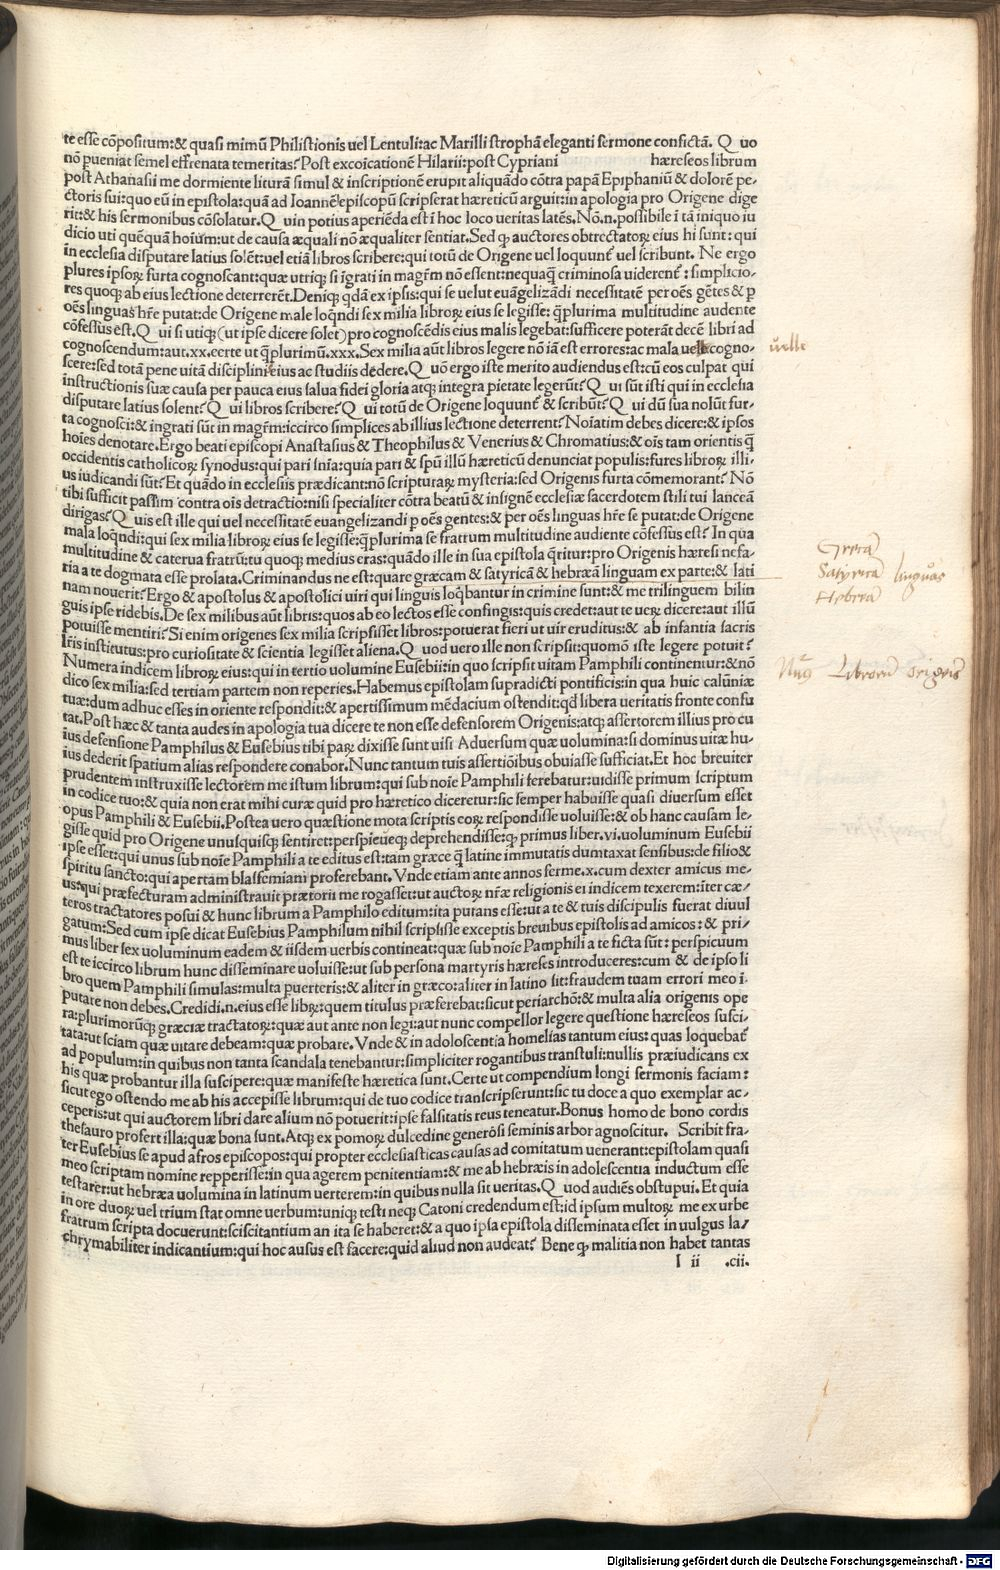 te esse cōpositum:& quasi mimū Philistionis uel Lentuli:ac Marilli strophā eleganti sermone confictā. Q uo
nō ꝓueniat semel effrenata temeritas? Post excoīcationē Hilarii:post Cypriani hæreseos librum
post Athanasii me dormiente liturā simul & inscriptionē erupit aliquādo cōtra papā Epiphaniū & dolorē pe-
ctoris sui:quo eū in epistola:quā ad Ioannē episcopū scripserat hæreticū arguit:in apologia pro Origene dige
rit:& his sermonibus cōsolatur. Q uin potius aperiēda est ī hoc loco ueritas latēs. Nō.n.possibile ī tā iniquo iu
dicio uti quēquā hoīum:ut de causa æquali nō æqualiter sentiat. Sed ꝙ auctores obtrectatoꝝ eius hi sunt: qui
in ecclesia disputare latius solēt:uel etiā libros scribere:qui totū de Origene uel loquunt̃ uel scribunt. Ne ergo
plures ipsoꝝ furta cognoscant:quæ utiqꝫ si īgrati in magr̄m nō essent:nequaꝗ̄ criminosa uiderent̃: simplicio-
res quoqꝫ ab eius lectione deterrēt. Deniqꝫ qdā ex ipsis:qui se uelut euāgelizādi necessitatē per oēs gētes & ꝑ
oēs linguas hr̄e putat:de Origene male loqndi sex milia libroꝝ eius se legisse: ꝗ̄plurima multitudine audente
cōfessus est. Q ui si utiqꝫ (ut ipse dicere solet) pro cognoscēdis eius malis legebat:sufficere poterāt decē libri ad
cognoscendum:aut.xx.certe ut ꝗ̄plurimū.xxx. Sex milia aūt libros legere nō iā est errores:ac mala uelle cogno-
scere:sed totā pene uitā disciplinis eius ac studiis dedere. Q uō ergo iste merito audiendus est:cū eos culpat qui
instructionis suæ causa per pauca eius salua fidei gloria atqꝫ integra pietate legerūt? Q ui sūt isti qui in ecclesia
disputare latius solent? Q ui libros scribere? Q ui totū de Origene loquunt̃ & scribūt? Q ui dū sua nolūt fur-
ta cognosci:& ingrati sūt in magr̄m:iccirco simplices ab illius lectione deterrent? Noīatim debes dicere:& ipsos
hoīes denotare. Ergo beati episcopi Anastasius & Theophilus & Venerius & Chromatius:& oīs tam orientis ꝗ̄
occidentis catholicoꝝ synodus:qui pari sn̄ia:quia pari & spū illū hæreticū denunciat populis:fures libroꝝ illi-
us iudicandi sūt? Et quādo in ecclesiis prædicant:nō scripturaꝝ mysteria:sed Origenis furta cōmemorant? Nō
tibi sufficit passim contra oīs detractio:nisi specialiter cōtra beatū & insignē ecclesiæ sacerdotem stili tui lanceā
dirigas? Q uis est ille qui uel necessitatē euangelizandi p oēs gentes:& per oēs linguas hr̄e se putat:de Origene
mala loqndi:qui sex milia libroꝝ eius se legisse:ꝗ̄plurima se fratrum multitudine audiente cōfessus est? In qua
multitudine & caterua fratrū:tu quoqꝫ medius eras:quādo ille in sua epistola q̄ritur:pro Origenis hæresi nefa-
ria a te dogmata esse prolata. Criminandus ne est:quare græcam & satyricā & hebræā linguam ex parte:& lati
nam nouerit? Ergo & apostolus & apostolici uiri qui linguis loq̄bantur in crimine sunt:& me trilinguem bilin
guis ipse ridebis. De sex milibus aūt libris:quos ab eo lectos esse confingis:quis credet:aut te ueꝝ dicere:aut illū
potuisse mentiri? Si enim origenes sex milia scripsisset libros:potuerat fieri ut uir eruditus:& ab infantia sacris
lr̄is institutus:pro curiositate & scientia legisset aliena. Q uod uero ille non scripsit:quomō iste legere potuit?
Numera indicem libroꝝ eius:qui in tertio uolumine Eusebii:in quo scripsit uitam Pamphili continentur:& nō
dico sex milia:sed tertiam partem non reperies. Habemus epistolam supradicti pontificis:in qua huic calūniæ
tuæ:dum adhuc esses in oriente respondit:& apertissimum mēdacium ostendit:qd libera ueritatis fronte confu
tat. Post hæc & tanta audes in apologia tua dicere te non esse defensorem Origenis:atqꝫ assertorem illius pro cu
ius defensione Pamphilus & Eusebius tibi paꝝ dixisse sunt uisi Aduersum quæ uolumina:si dominus uitæ hu-
ius dederit spatium alias respondere conabor. Nunc tantum tuis assertiōibus obuiasse sufficiat. Et hoc breuiter
prudentem instruxisse lectorem me istum librum:qui sub noīe Pamphili ferebatur:uidisse primum scriptum
in codice tuo:& quia non erat mihi curæ quid pro hæretico diceretur:sic semper habuisse quasi diuersum esset
opus Pamphili & Eusebii. Postea uero quæstione mota scriptis eoꝝ respondisse uoluisse:& ob hanc causam le-
gisse quid pro Origene unusquisqꝫ sentiret:perspicueqꝫ deprehendisse:ꝙ primus liber.vi.uoluminum Eusebii
ipse esset:qui unus sub noīe Pamphili a te editus est:tam græce ꝗ̄ latine immutatis dumtaxat sensibus:de filio &
spiritu sancto:qui apertam blasfemiam proferebant. Vnde etiam ante annos ferme.x.cum dexter amicus me-
us:qui præfecturam administrauit prætorii me rogasset:ut auctoꝝ nr̄æ religionis ei indicem texerem:iter cæ-
teros tractatores posui & hunc librum a Pamphilo editum:ita putans esse:ut a te & tuis discipulis fuerat diuul
gatum: Sed cum ipse dicat Eusebius Pamphilum nihil scripsisse exceptis breuibus epistolis ad amicos: & pri-
mus liber sex uoluminum eadem & iisdem uerbis contineat:quæ sub noīe Pamphili a te ficta sūt: perspicuum
est te iccirco librum hunc disseminare uoluisse:ut sub persona martyris hæreses introduceres:cum & de ipso li
bro quem Pamphili simulas:multa puerteris:& aliter in græco:aliter in latino sit:fraudem tuam errori meo i-
putare non debes. Credidi.n.eius esse libꝝ:quem titulus præferebat:sicut periarchō:& multa alia origenis ope
ra:plurimorūqꝫ græciæ tractatoꝝ:quæ aut ante non legi:aut nunc compellor legere questione hæreseos susci-
tata:ut sciam quæ uitare debeam:quæ probare. Vnde & in adolescentia homelias tantum eius: quas loquebat̃
ad populum:in quibus non tanta scandala tenebantur:simpliciter rogantibus transtuli:nullis præiudicans ex
his quæ probantur illa suscipere:quæ manifeste hæretica sunt. Certe ut compendium longi sermonis faciam:
sicut ego ostendo me ab his accepisse librum:qui de tuo codice transcripserunt:sic tu doce a quo exemplar ac-
ceperis:ut qui auctorem libri dare alium nō potuerit:ipse falsitatis reus teneatur. Bonus homo de bono cordis
thesauro profert illa:quæ bona sunt. Atqꝫ ex pomoꝝ dulcedine generōsi seminis arbor agnoscitur. Scribit fra-
ter Eusebius se apud afros episcopos:qui propter ecclesiasticas causas ad comitatum uenerant:epistolam quasi
meo scriptam nomine repperisse:in qua agerem penitentiam:& me ab hebræis in adolescentia inductum esse
testarer:ut hebræa uolumina in latinum uerterem:in quibus nulla sit ueritas. Q uod audiēs obstupui. Et quia
in ore duoꝝ uel trium stat omne uerbum:uniqꝫ testi neqꝫ Catoni credendum est:id ipsum multoꝝ me ex urbe
fratrum scripta docuerunt:sciscitantium an ita se haberet:& a quo ipsa epistola disseminata esset in uulgus la-
chrymabiliter indicantium:qui hoc ausus est facere:quid aliud non audeat? Bene ꝙ malitia non habet tantas
I ii .cii.
uelle
Grecā
Satyricā linguās
Hebreā
Nūs Librorū Origenis
Digitalisierung gefördert durch die Deutsche Forschungsgemeinschaft - DFG